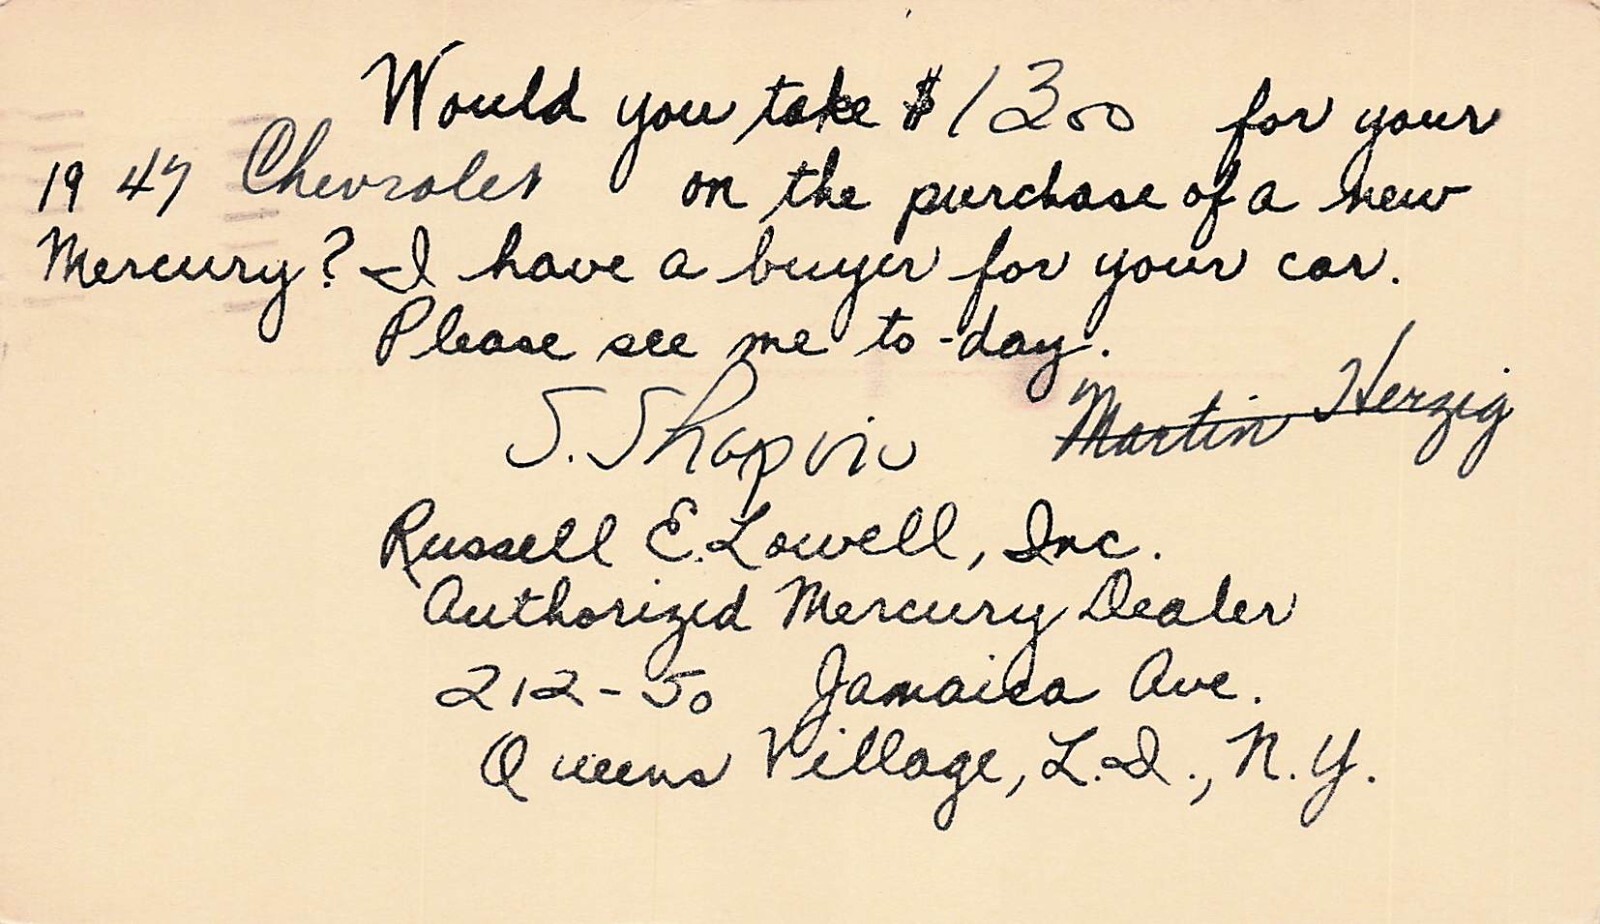 Would you take $1300 for your
1947 Chevrolet on the purchase of a new
Mercury? I have a buyer for your car.
Please see me to-day.
S. Shapiro Martin Herzig
Russell E. Lowell, Inc.
Authorized Mercury Dealer
212-50 Jamaica Ave.
Queens Village, L.I., N.Y.